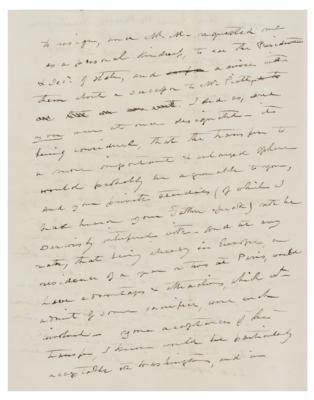 to resign, since Mr. M. requested me
as a personal kindness, to see the President
& Sec. of State, and advise with
them about a successor to Mr.
I did so, and
you were at once designated - it
being considered, that the transfer to
a more important & enlarged sphere
would probably be agreeable to you,
and your private studies (of which I
had heard your Father speak) not be
seriously interfered with - and at any
rate, that being already in Europe, a
residence of a year or two at Paris, would
have advantages & attractions, which wd
admit of some sacrifice, were such
involved - your acceptance of the
transfer, I know would be particularly
acceptable at Washington, and in